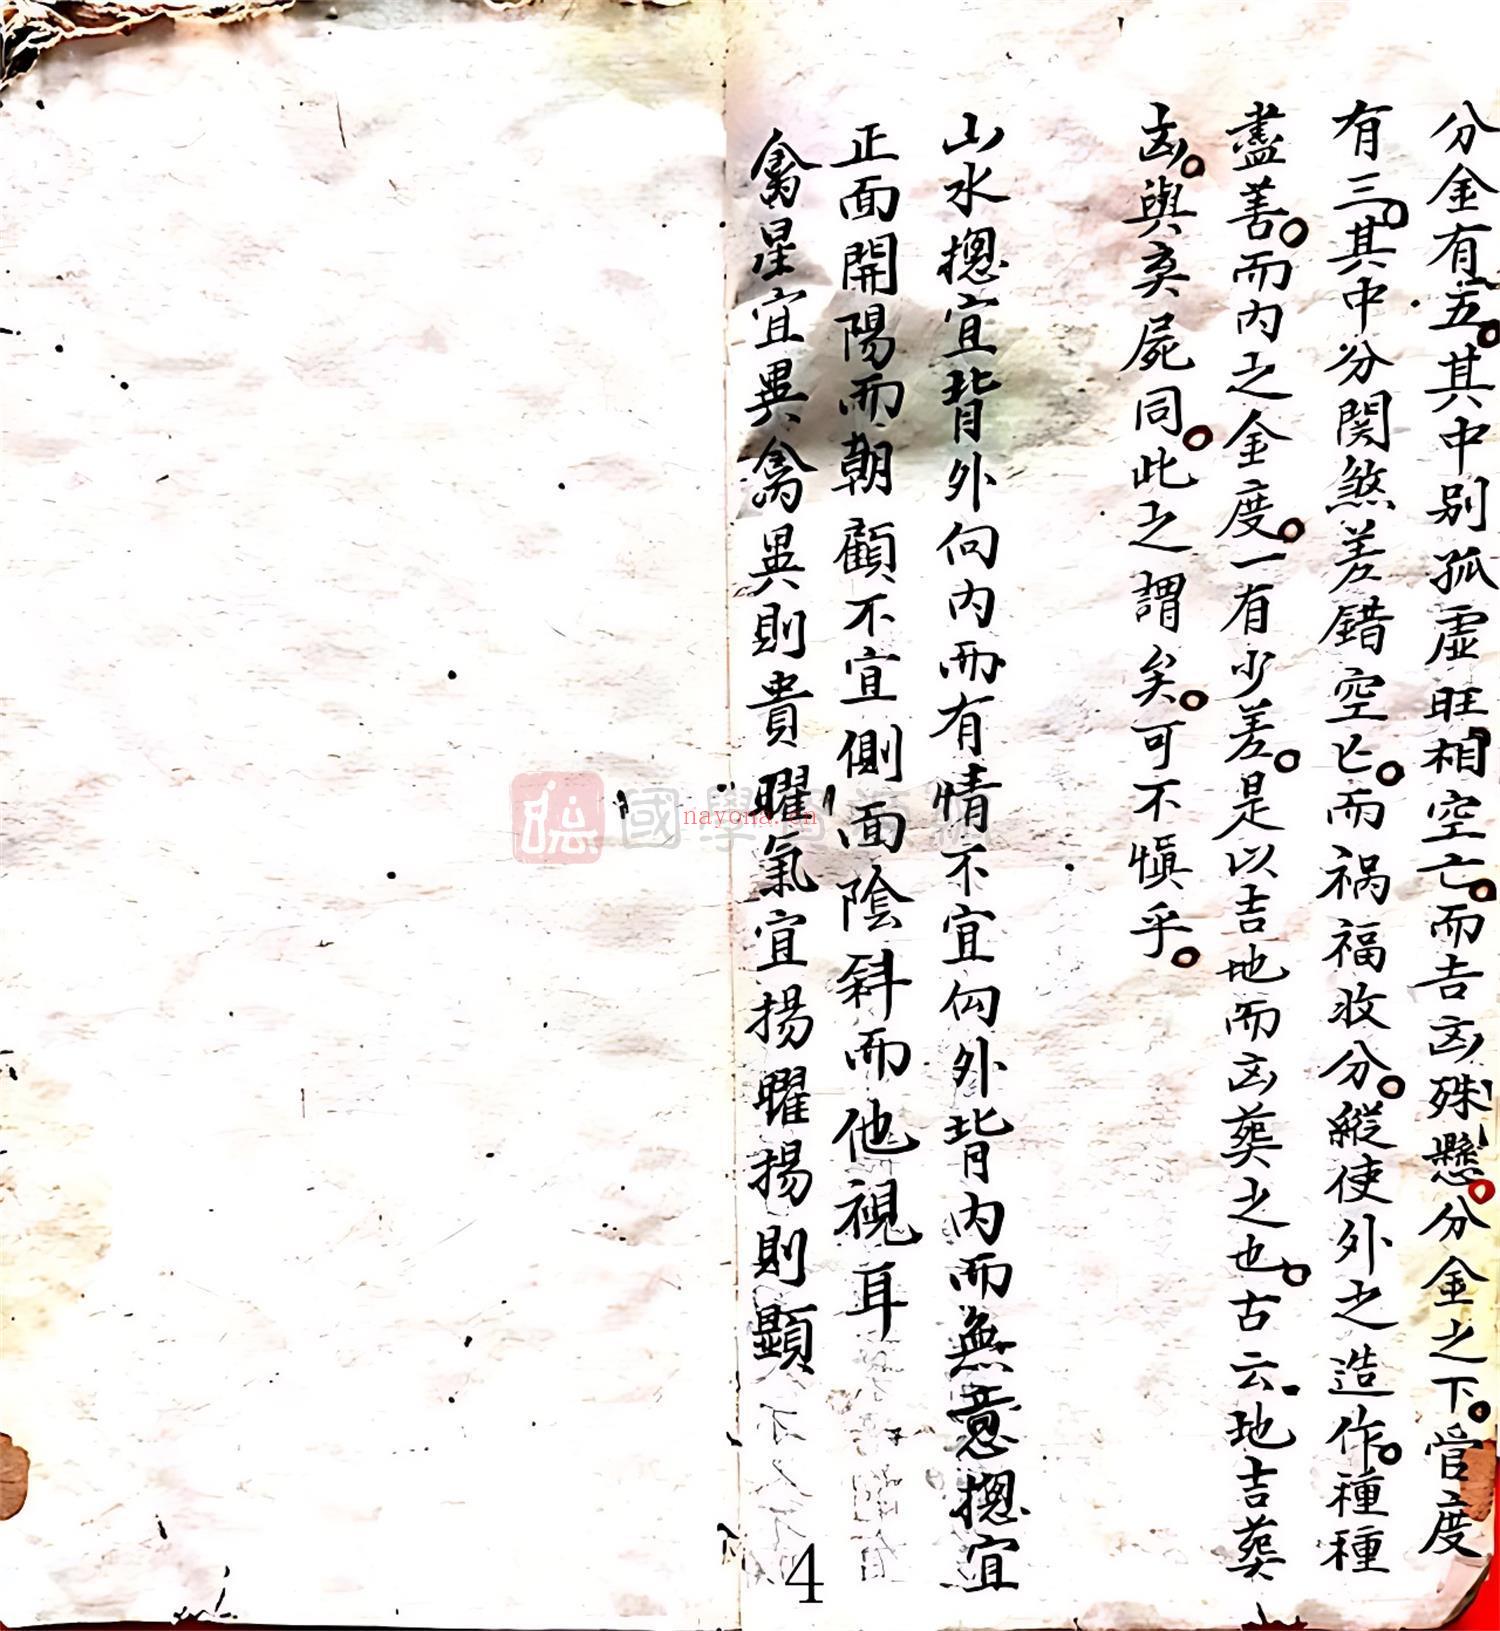 分金有五其中別孤虛旺相空亡而吉凶殊懸分金之下官度
有三其中分関煞差錯空亡而禍福收分縱使外之造作種種
盡善而內之金度一有少差是以吉地而凶葬之也古云地吉葬
凶與弃屍同此之謂矣可不慎乎
山水摠宜背外向內而有情不宜向外背內而無意摠宜
正面開陽而朝顧不宜側面陰斜而他視耳
禽星宜異禽異則貴曜氣宜揚曜揚則顯
4
nayona.cn